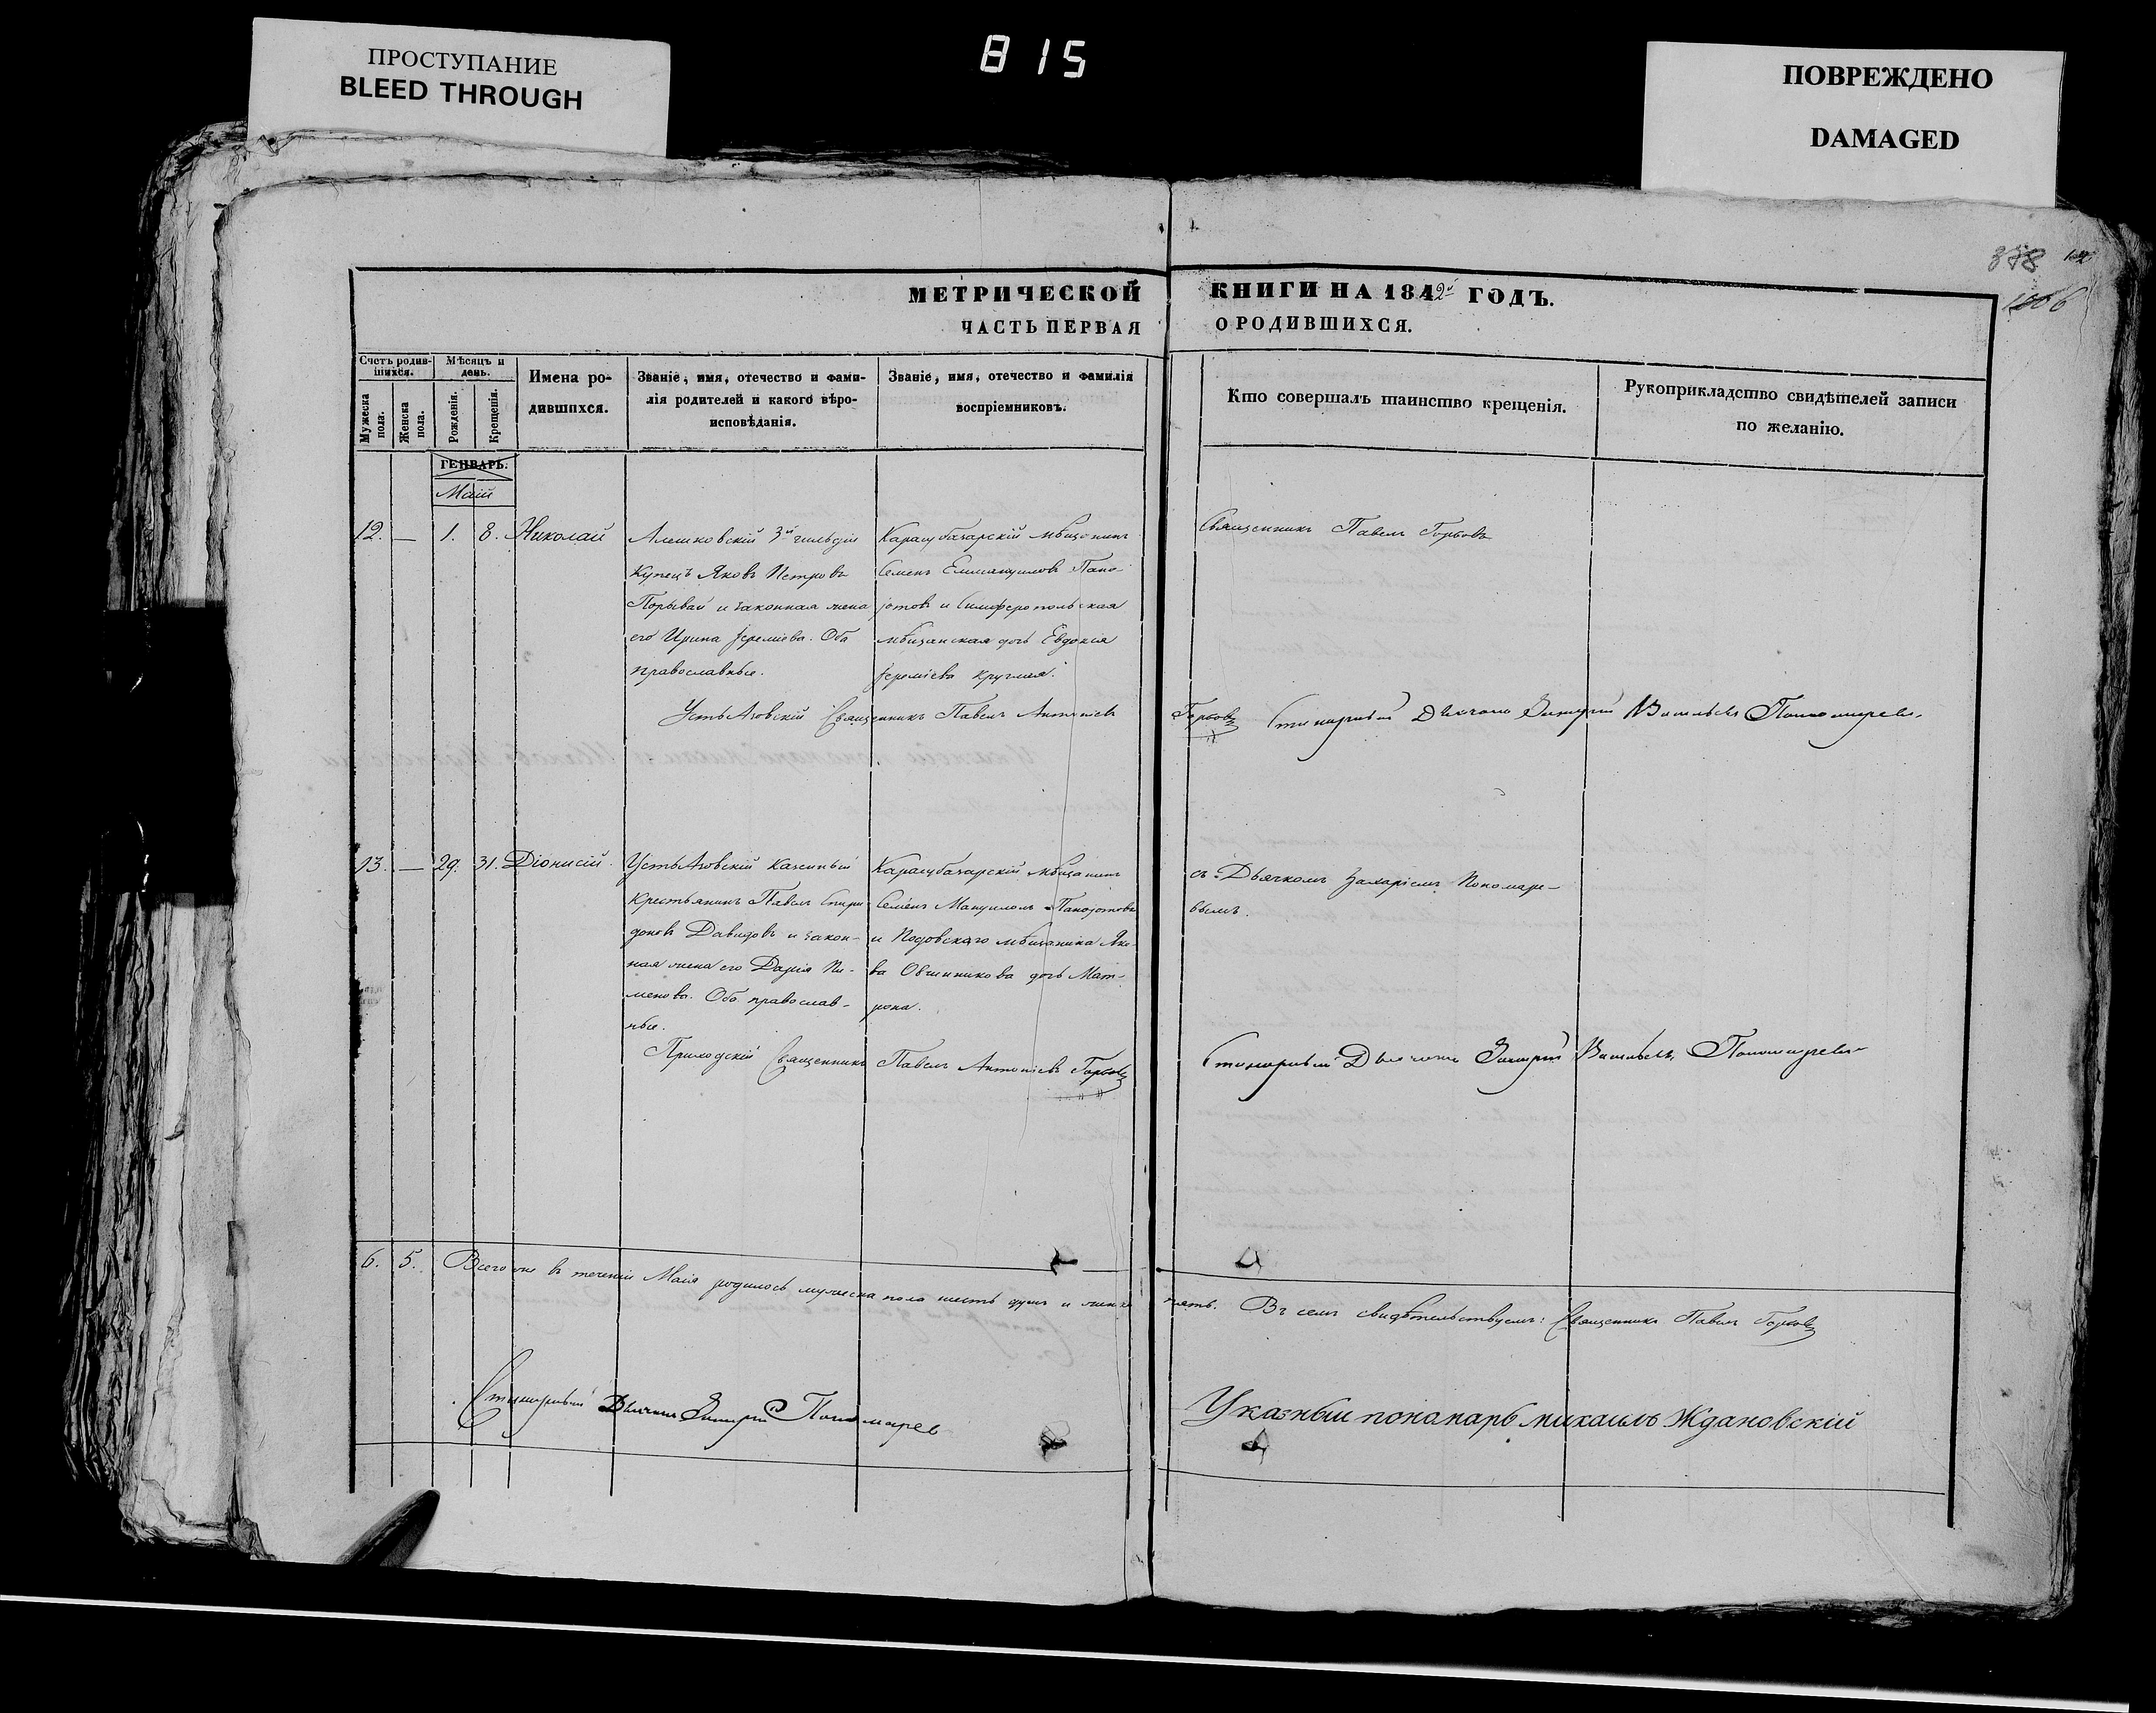 815
ПРОСТУПАНИЕ
BLEED THROUGH
ПОВРЕЖДЕНО
DAMAGED
МЕТРИЧЕСКОЙ КНИГИ НА 1842й ГОДЪ.
ЧАСТЬ ПЕРВАЯ О РОДИВШИХСЯ.
Счетъ родив-
шихся.
Мужеска пола.
Женска пола.
Мѣсяцъ и
день.
Рожденія.
Крещенія.
Имена ро-
дившихся.
Званіе, имя, отечество и фами-
лія родителей и какого вѣро-
исповѣданія.
Званіе, имя, отечество и фамилія
воспріемниковъ.
Кто совершалъ таинство крещенія.
Рукоприкладство свидѣтелей записи
по желанію.
ГЕНВАРЬ.
Маій
12. — 1. 8. Николай
Алешковскій 3й гильдіи
Купецъ Яковъ Петровъ
Порывай и законная жена
его Ирина Іереміева. Оба
православные.
Карасубазарскій мѣщанинъ
Семенъ Еммануиловъ Пано-
іотовъ и Симферопольская
мѣщанская дочь Евдокія
Іереміева Круглая.
Священникъ Павелъ Горбовъ
УстьАзовскій Священникъ Павелъ Антоніевъ Горбовъ
Стихарный Дьячокъ Захарій Васильевъ Пономаревъ
13. — 29. 31. Діонисій.
УстьАзовскій казенный
крестьянинъ Павелъ Спири-
доновъ Давидовъ и закон-
ная жена его Дарія Пи-
менова. Оба православ-
ные.
Карасубазарскій мѣщанинъ
Семенъ Мануиловъ Панаіотовъ
и Подовскаго мѣщанина Яко-
ва Овчинникова дочь Мат-
рона.
съ Дьячкомъ Захаріемъ Пономаре-
вымъ.
Приходскій Священникъ Павелъ Антоніевъ Горбовъ
Стихарный Дьячокъ Захарій Васильевъ Пономаревъ
6. 5. Всего въ теченіи Маія родилось мужеска пола шесть душъ и женска пять. Въ семъ свидѣтельствуемъ: Священникъ Павелъ Горбовъ
Стихарный Дьячокъ Захарій Пономарев
Указный понамарь михаилъ Ждановскій